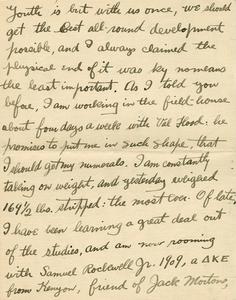 Youth is but with us once, we should
get the best all-round development
possible, and I always claimed the
physical end of it was by no means
the least important. As I told you
before, I am working in the field-house
about four days a week with Val Flood: he
promises to put me in such shape, that
I should get my numerals. I am constantly
taking on weight, and yesterday weighed
169½ lbs. stripped: the most ever. Of late,
I have been learning a great deal out
of the studies, and am now rooming
with Samuel Rockwell Jr. 1909, a ΔKE
from Kenyon, friend of Jack Morton,